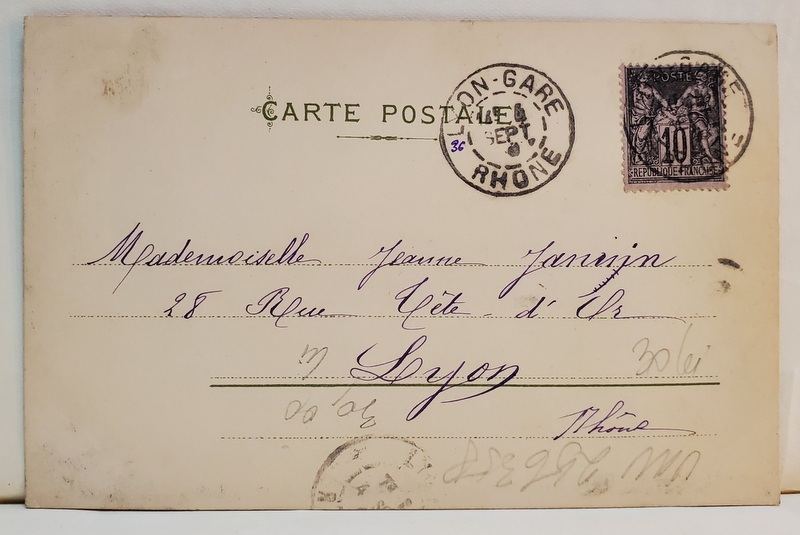 CARTE POSTALE
LYON-GARE
SEPT.
RHÔNE
36
POSTES
10
REPUBLIQUE FRANCAISE
Mademoiselle Jeanne
28 Rue Tête-d'Or
Lyon
30 lei
Rhône